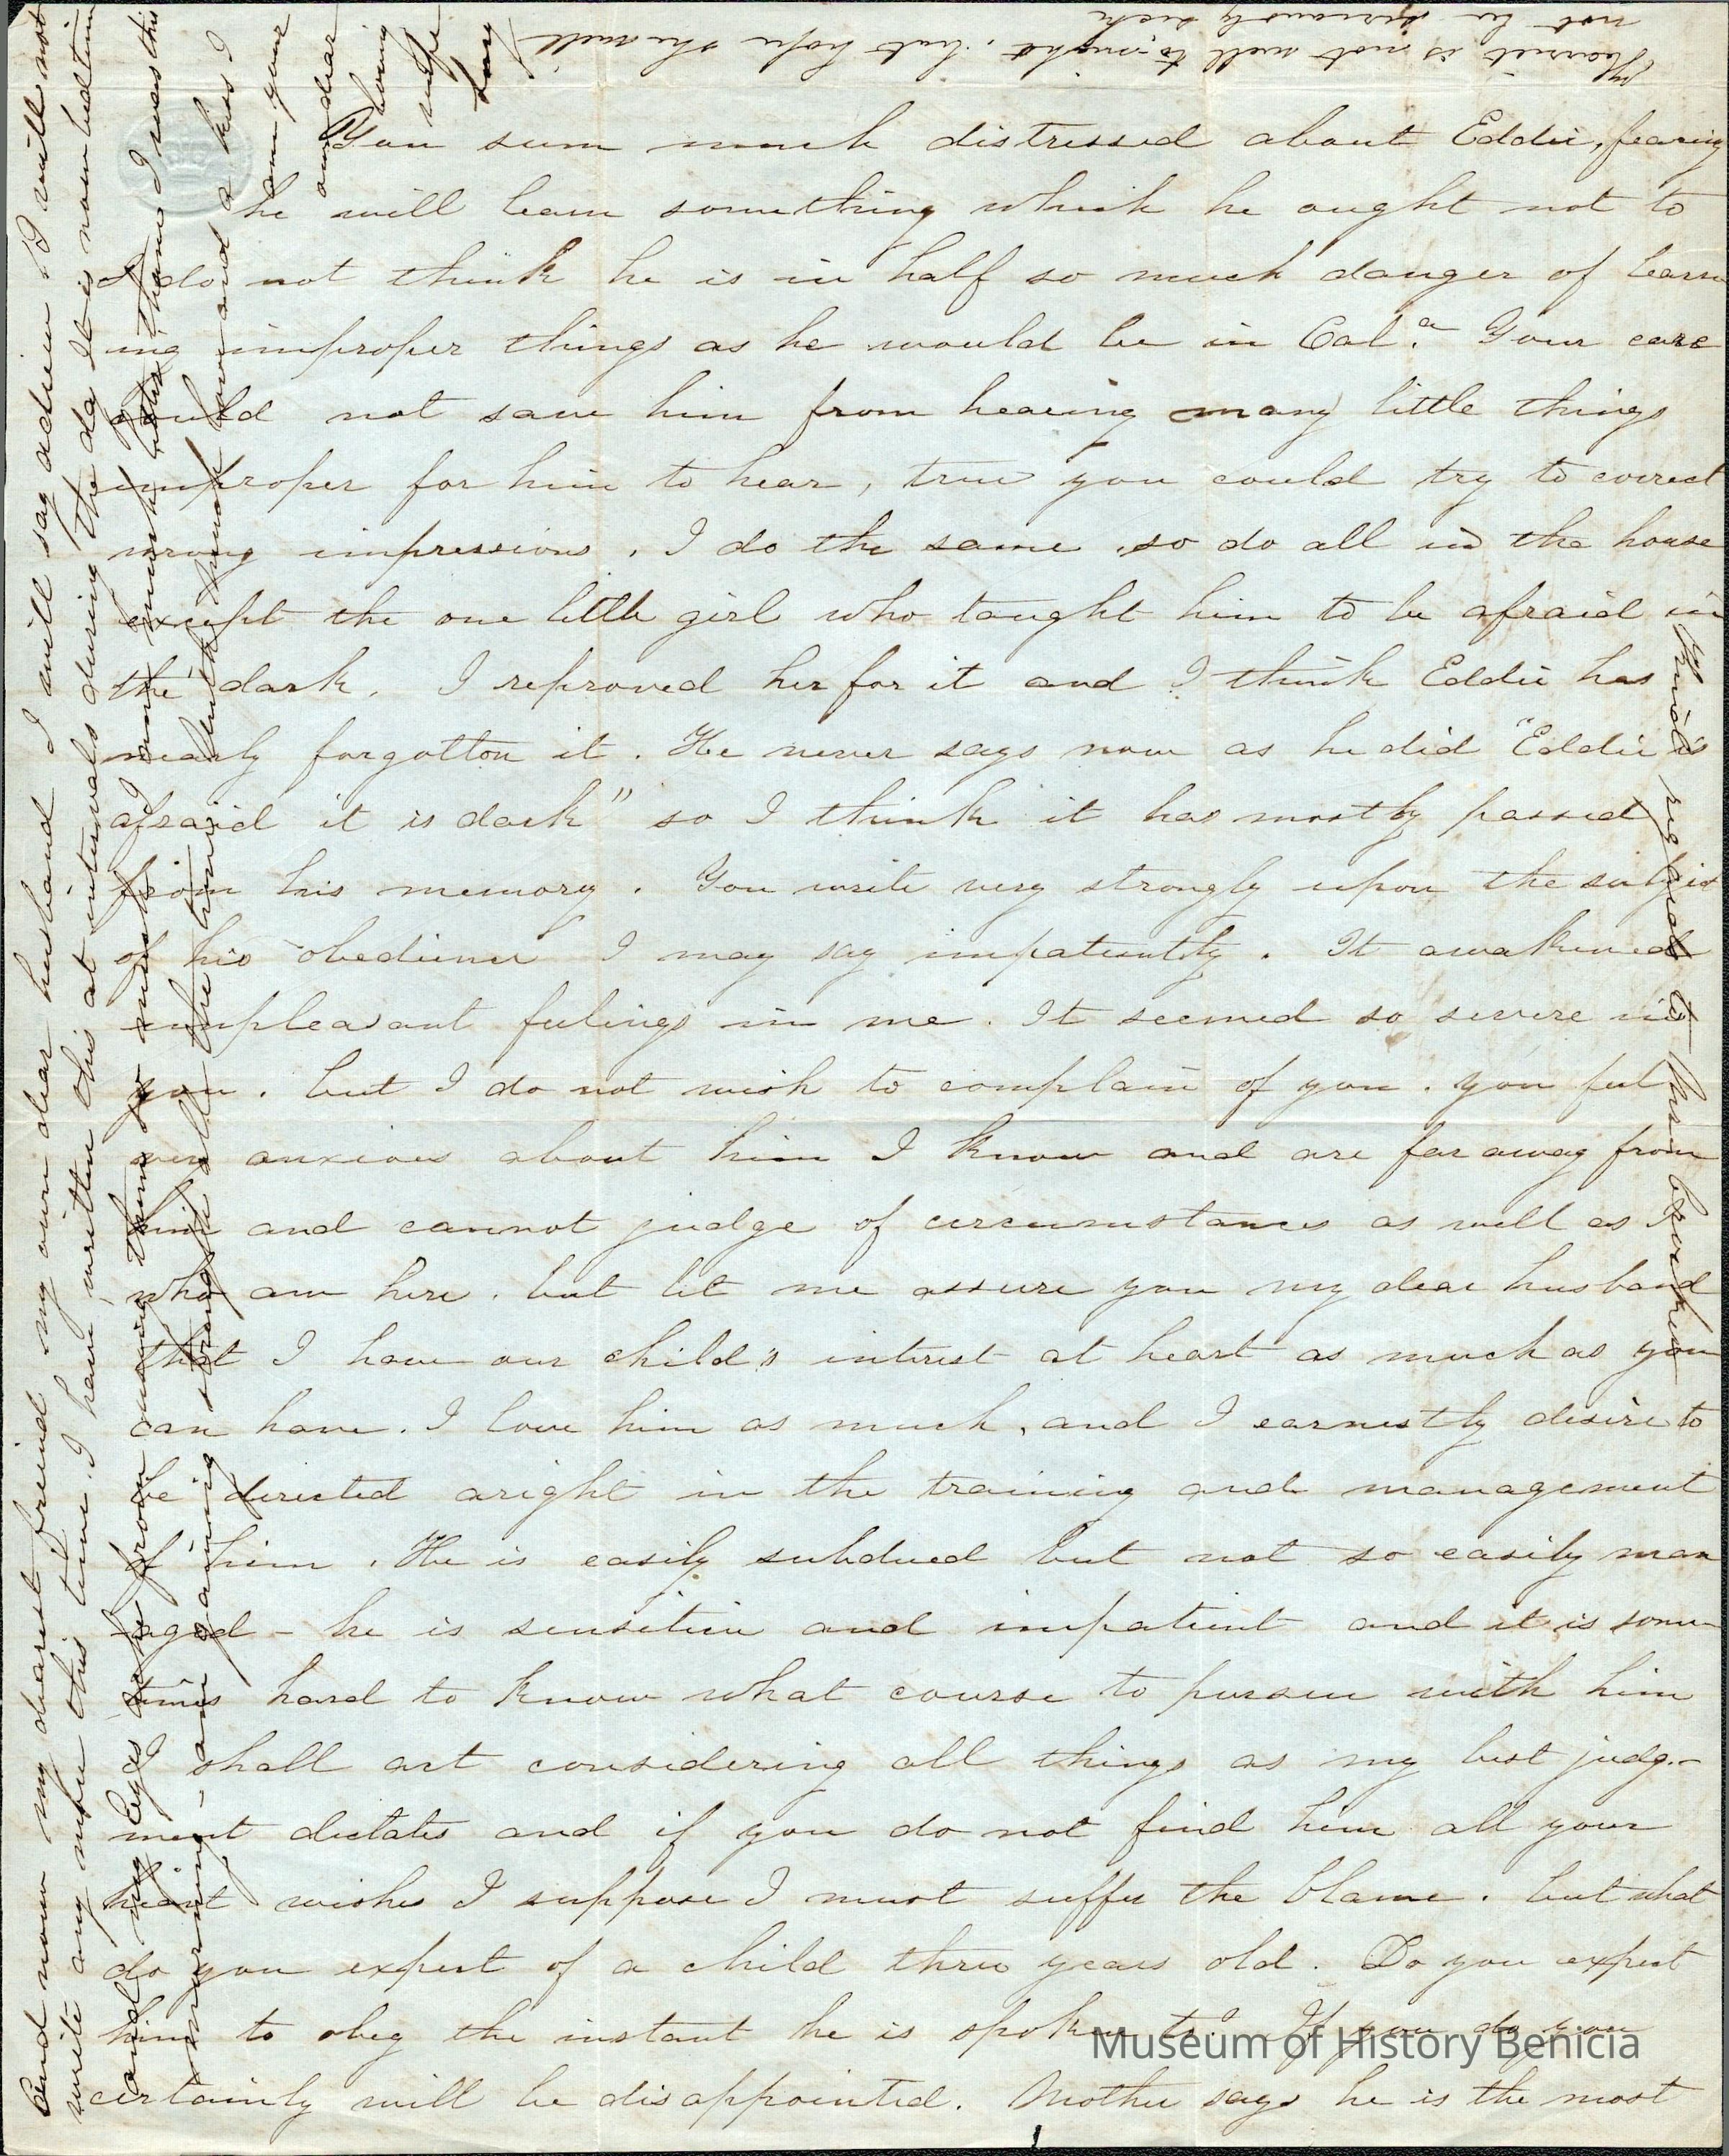 You seem much distressed about Eddie, fearing
he will learn something which he ought not to
I do not think he is in half so much danger of learn
ing improper things as he would be in Cal.a Your care
could not save him from hearing many little things
improper for him to hear, true you could try to correct
wrong impressions. I do the same, so do all in the house
except the one little girl who taught him to be afraid in
the dark. I reproved her for it and I think Eddie has
nearly forgotton it. He never says now as he did "Eddie is
afraid it is dark" so I think it has mostly passed
from his memory. You write very strongly upon the subject
of his obedience I may say impatiently. It awakened
unpleasant feelings in me. It seemed so severe in
you. but I do not wish to complain of you. you feel
very anxious about him I know and are far away from
him and cannot judge of circumstances as well as I
who am here. but let me assure you my dear husband
that I have our child's interest at heart as much as you
can have. I love him as much, and I earnestly desire to
be directed aright in the training and management
of him. He is easily subdued but not so easily man
aged - he is sensitive and impatient and it is some
times hard to know what course to pursue with him
I shall act considering all things as my best judg-
ment dictates and if you do not find him all your
heart wishes I suppose I must suffer the blame. but what
do you expect of a child three years old. Do you expect
him to obey the instant he is spoken to? If you do you
certainly will be disappointed. Mother says he is the most
And now my dearest freind my own dear husband I will say adieu I will not
write any more this time. I have written this at intervals during the day It is now bedtime
and my eyes ache from using them so much. I am much better than I was this
morning - am gaining strength all the time
love and a kiss I
am your
own dear
loving
wife
Lucy
Harriet is not well to-night, but hope she will
not be seriously sick
Kind regards to Mr
Museum of History Benicia